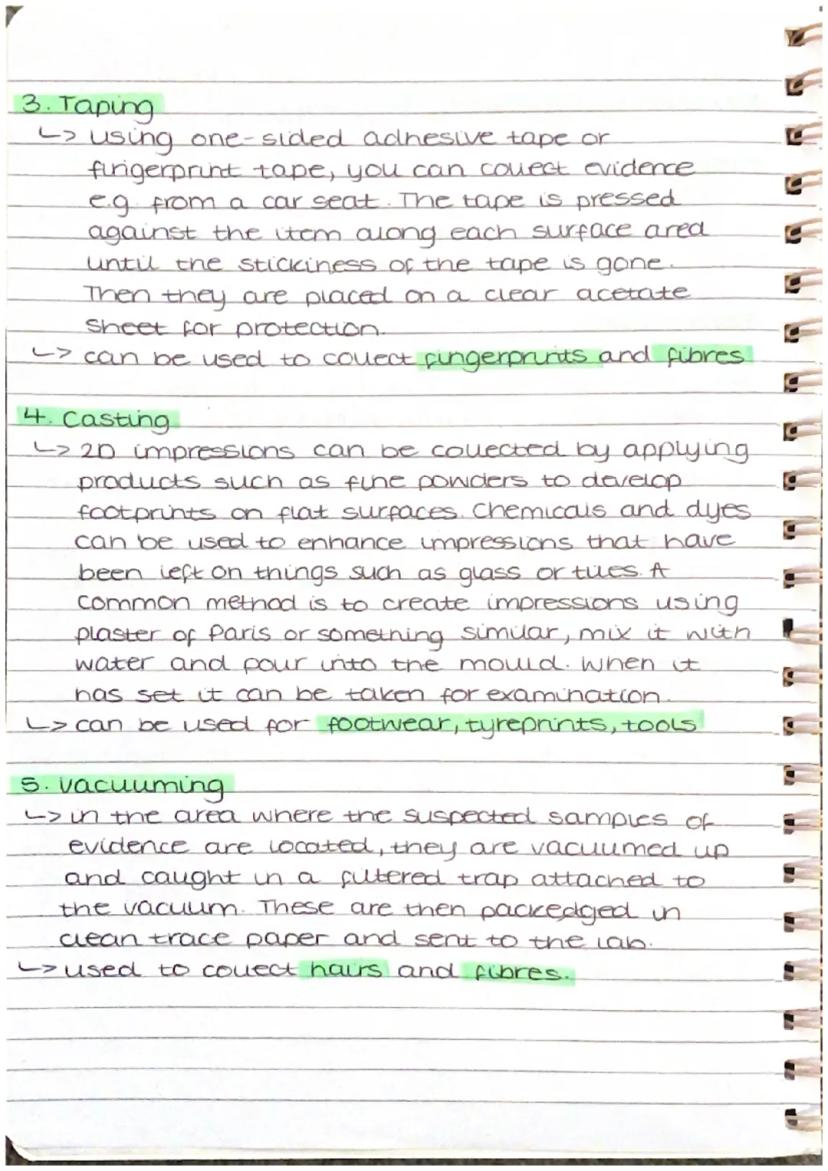 3. Taping
↳ using one-sided adhesive tape or
fingerprint tape, you can collect evidence
e.g from a car seat. The tape is pressed
against the item along each surface area
until the stickiness of the tape is gone.
Then they are placed on a clear acetate
sheet for protection.
↳ can be used to collect fingerprints and fibres
4. Casting
↳ 2D impressions can be collected by applying
products such as fine powders to develop
footprints on flat surfaces. Chemicals and dyes
can be used to enhance impressions that have
been left on things such as glass or tiles. A
common method is to create impressions using
plaster of Paris or something similar, mix it with
water and pour into the mould. When it
has set it can be taken for examination.
↳ can be used for footwear, tyreprints, tools
5. Vacuuming
↳ in the area where the suspected samples of
evidence are located, they are vacuumed up
and caught in a filtered trap attached to
the vacuum. These are then packedged in
clean trace paper and sent to the lab.
↳ used to collect hairs and fibres.